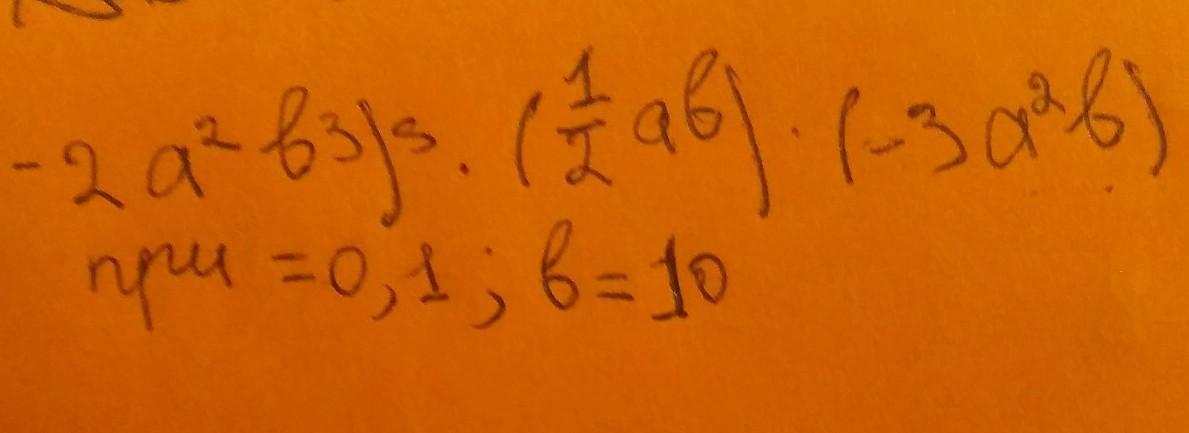 -2a² b3)⁵ · (1/2 ab) · (-3a²b)
при =0,1; b=10